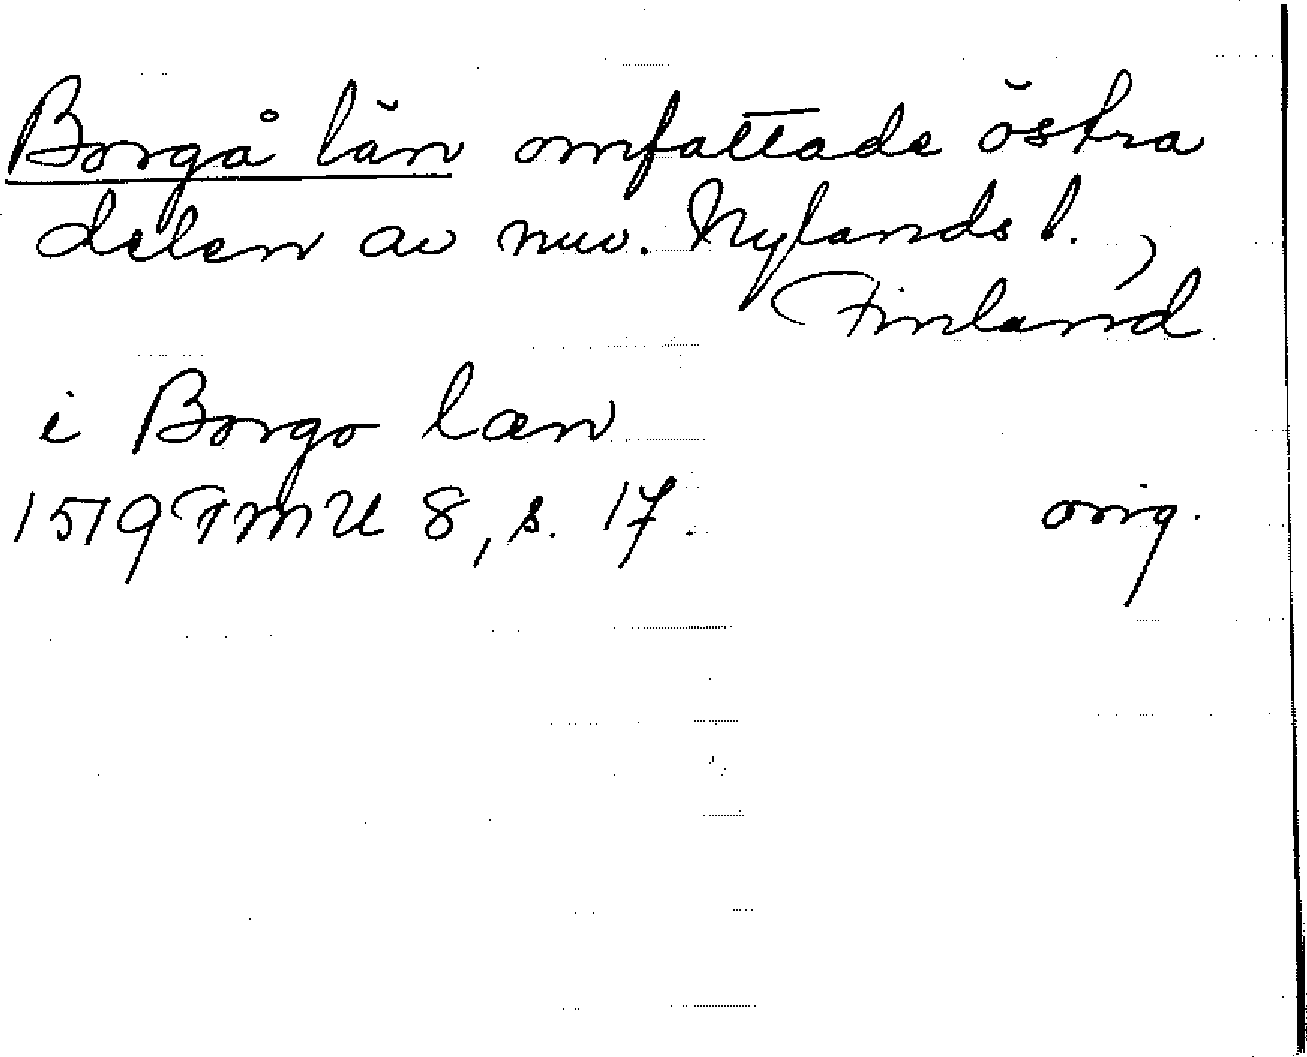 Borgå län omfattade östra
delen av nuv. Nylands l.,
Finland
i Borgo læn
1519 FMU 8, s. 17. orig.